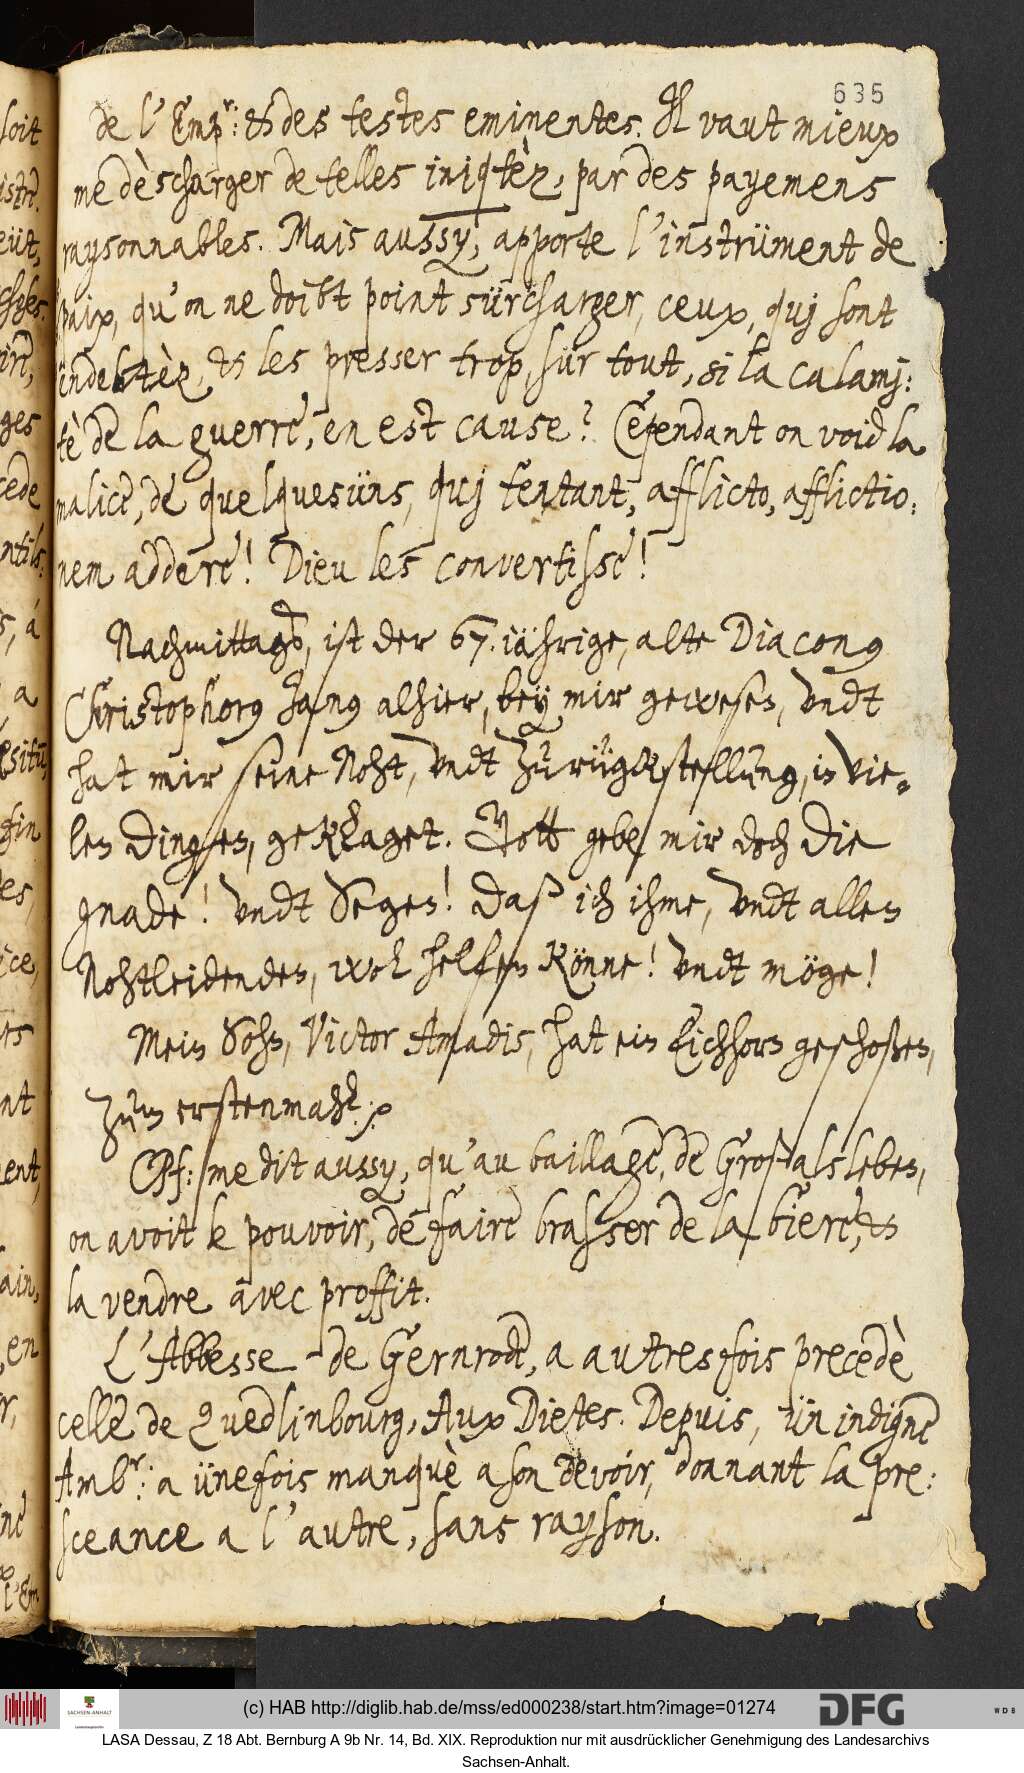 635
de l'Emp.r: & des testes eminentes. Il vaut mieux
me dèscharger de telles iniqtèz, par des payemens
raysonnables. Mais aussy, apporte l'instrüment de
Paix, qu'on ne doibt point sürcharger, ceux, quj sont
indebtèz, & les presser trop, sür tout, si la calamj:
tè de la guerre, en est cause? Cependant on void la
malice, de quelquesüns, quj tentant, afflicto, afflictio:
nem addere! Dieu les convertisse!
Nachmittags, ist der 67. iährige, alte Diaconus
Christophorus Janus alhier, bey mir gewesen, undt
hat mir seine Noht, undt Zurügkstellung, in vie-
len Dingen, geklaget. Gott gebe mir doch die
gnade! undt Segen! Daß ich ihme, undt allen
Nohtleidenden, wol helfen könne! undt möge!
Mein Sohn, Victor Amadis, hat ein Eichhorn geschoßen,
Zum erstenmahl. /.
CPf: me dit aussy, qu'au baillage, de Großalsleben,
on avoit le pouvoir, de faire brasser de la biere, &
la vendre avec proffit.
L'Abbesse de Gernrode, a autresfois precedè
celle de Quedlinbourg, Aux Dietes. Depuis, ün indigne
Amb.r: a ünefois manquè a son devoir, donnant la pre:
sceance a l'autre, sans rayson.
soit
eüt,
ges
cede
ntils:
s, á
a
fin
es,
ice,
nt
ent,
ain,
, en
r,
l'Em.
(c) HAB http://diglib.hab.de/mss/ed000238/start.htm?image=01274
SACHSEN-ANHALT
DFG
WDB
LASA Dessau, Z 18 Abt. Bernburg A 9b Nr. 14, Bd. XIX. Reproduktion nur mit ausdrücklicher Genehmigung des Landesarchivs
Sachsen-Anhalt.